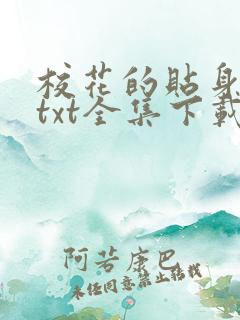 校花的貼身
txt全集下載
阿若康巴
未经同意禁止转载